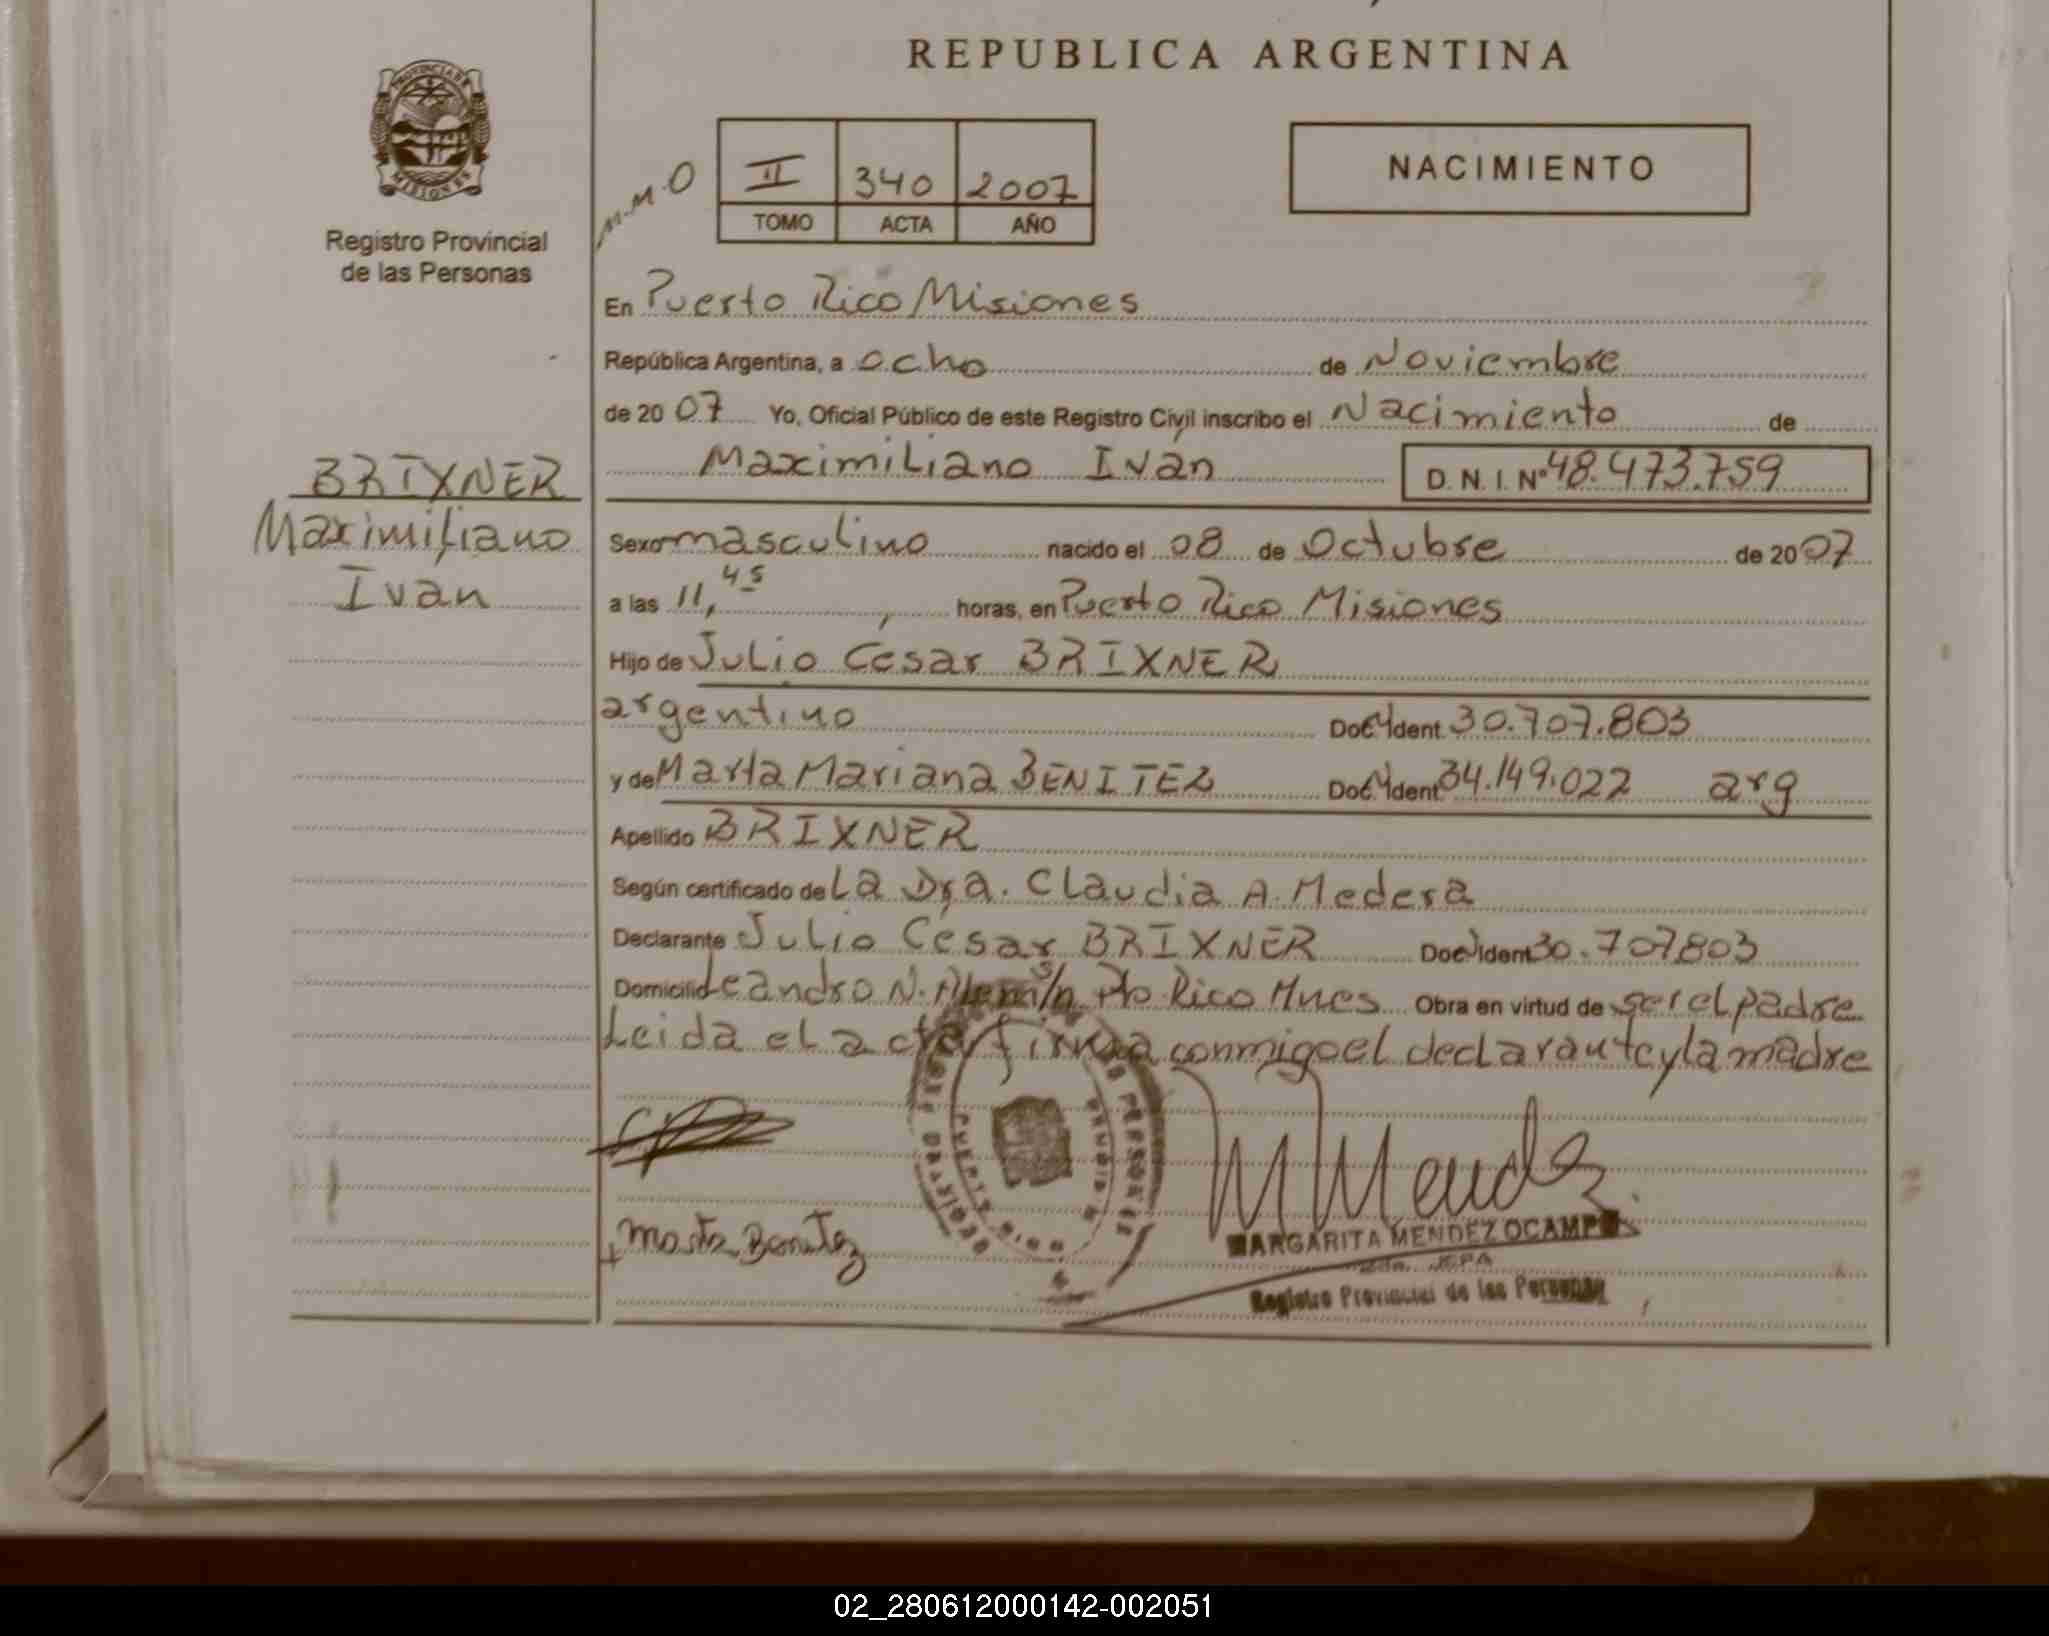 REPUBLICA ARGENTINA
PROVINCIA DE
MISIONES
Registro Provincial
de las Personas
M.M.O
II 340 2007
TOMO ACTA AÑO
NACIMIENTO
En Puerto Rico Misiones
República Argentina, a ocho de Noviembre
de 20 07 Yo, Oficial Público de este Registro Civil inscribo el Nacimiento de
Maximiliano Iván D. N. I. Nº 48.473.759
BRIXNER
Maximiliano
Ivan
Sexo masculino nacido el 08 de Octubre de 20 07
a las 11,45 horas, en Puerto Rico Misiones
Hijo de Julio Cesar BRIXNER
argentino Doc. Ident. 30.707.803
y de Marta Mariana BENITEZ Doc. Ident. 34.149.022 arg
Apellido BRIXNER
Según certificado de La Dra. Claudia A. Medera
Declarante Julio Cesar BRIXNER Doc. Ident. 30.707803
Domicilio Leandro N. Alem s/n Pto Rico Mnes Obra en virtud de ser el padre
Leida el acta firma conmigo el declarante y la madre
Marta Benitez
M Mendez
MARGARITA MENDEZ OCAMPO
Registro Provincial de las Personas
02_280612000142-002051